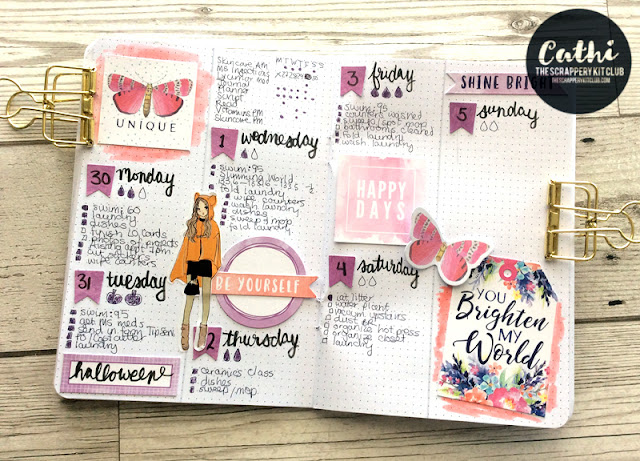 Cathi
THE SCRAPPERY KIT CLUB
WWW.THESCRAPPERYKITCLUB.COM
UNIQUE
30 monday
swim: 60
laundry
dishes
finish LO cards
photos of projects
wipe counters
31 tuesday
swim: 95
get MS meds
laundry
halloween
Skincare AM
MS Injection
Journal
Planner
Script
Read
Vitamins PM
Skincare PM
M T W T F S S
1 wednesday
swim: 95
Slimming World
fold laundry
wipe counters
wash laundry
dishes
sweep & mop
fold laundry
BE YOURSELF
2 thursday
ceramics class
dishes
sweep/mop
3 friday
swim: 95
counters washed
sweep/spot mop
bathrooms cleaned
fold laundry
wash laundry
HAPPY
DAYS
4 saturday
cat litter
water plant
vacuum upstairs
dust off
organize hot press
organize closet
laundry
SHINE BRIGHT
5 sunday
YOU
Brighten
MY
World